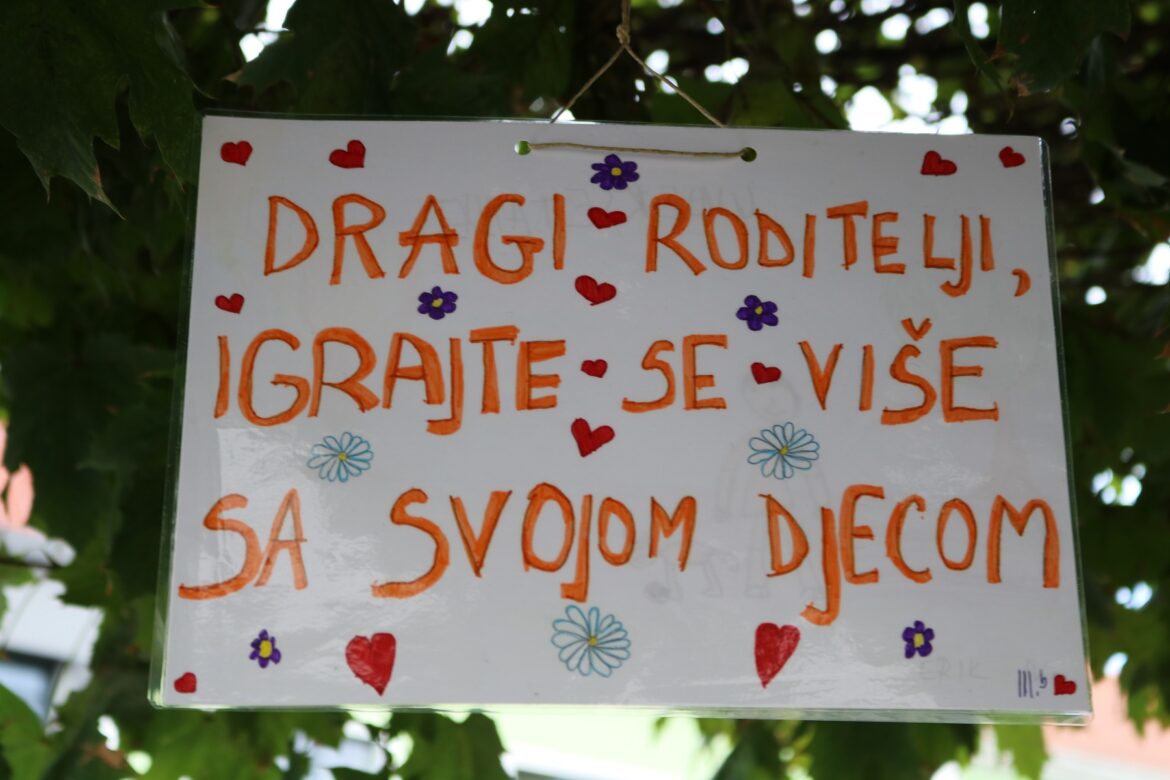 DRAGI RODITELJI,
IGRAJTE SE VIŠE
SA SVOJOM DJECOM
ERIK
III.b